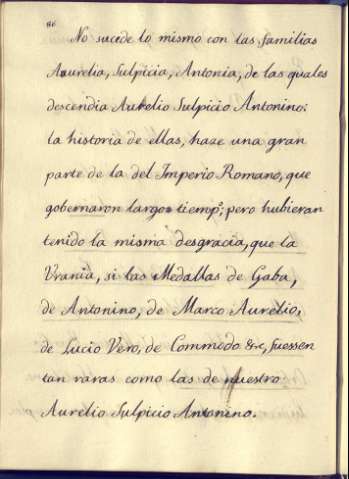 86
No sucede lo mismo con las familias
Aurelia, Sulpicia, Antonia, de las quales
descendia Aurelio Sulpicio Antonino:
la historia de ellas, haze una gran
parte de la del Imperio Romano, que
gobernaron largos tiemp.º; pero hubieran
tenido la misma desgracia, que la
Vrania, si las Medallas de Gaba,
de Antonino, de Marco Aurelio,
de Lucio Vero, de Commodo &c, fuessen
tan raras como las de nuestro
Aurelio Sulpicio Antonino.